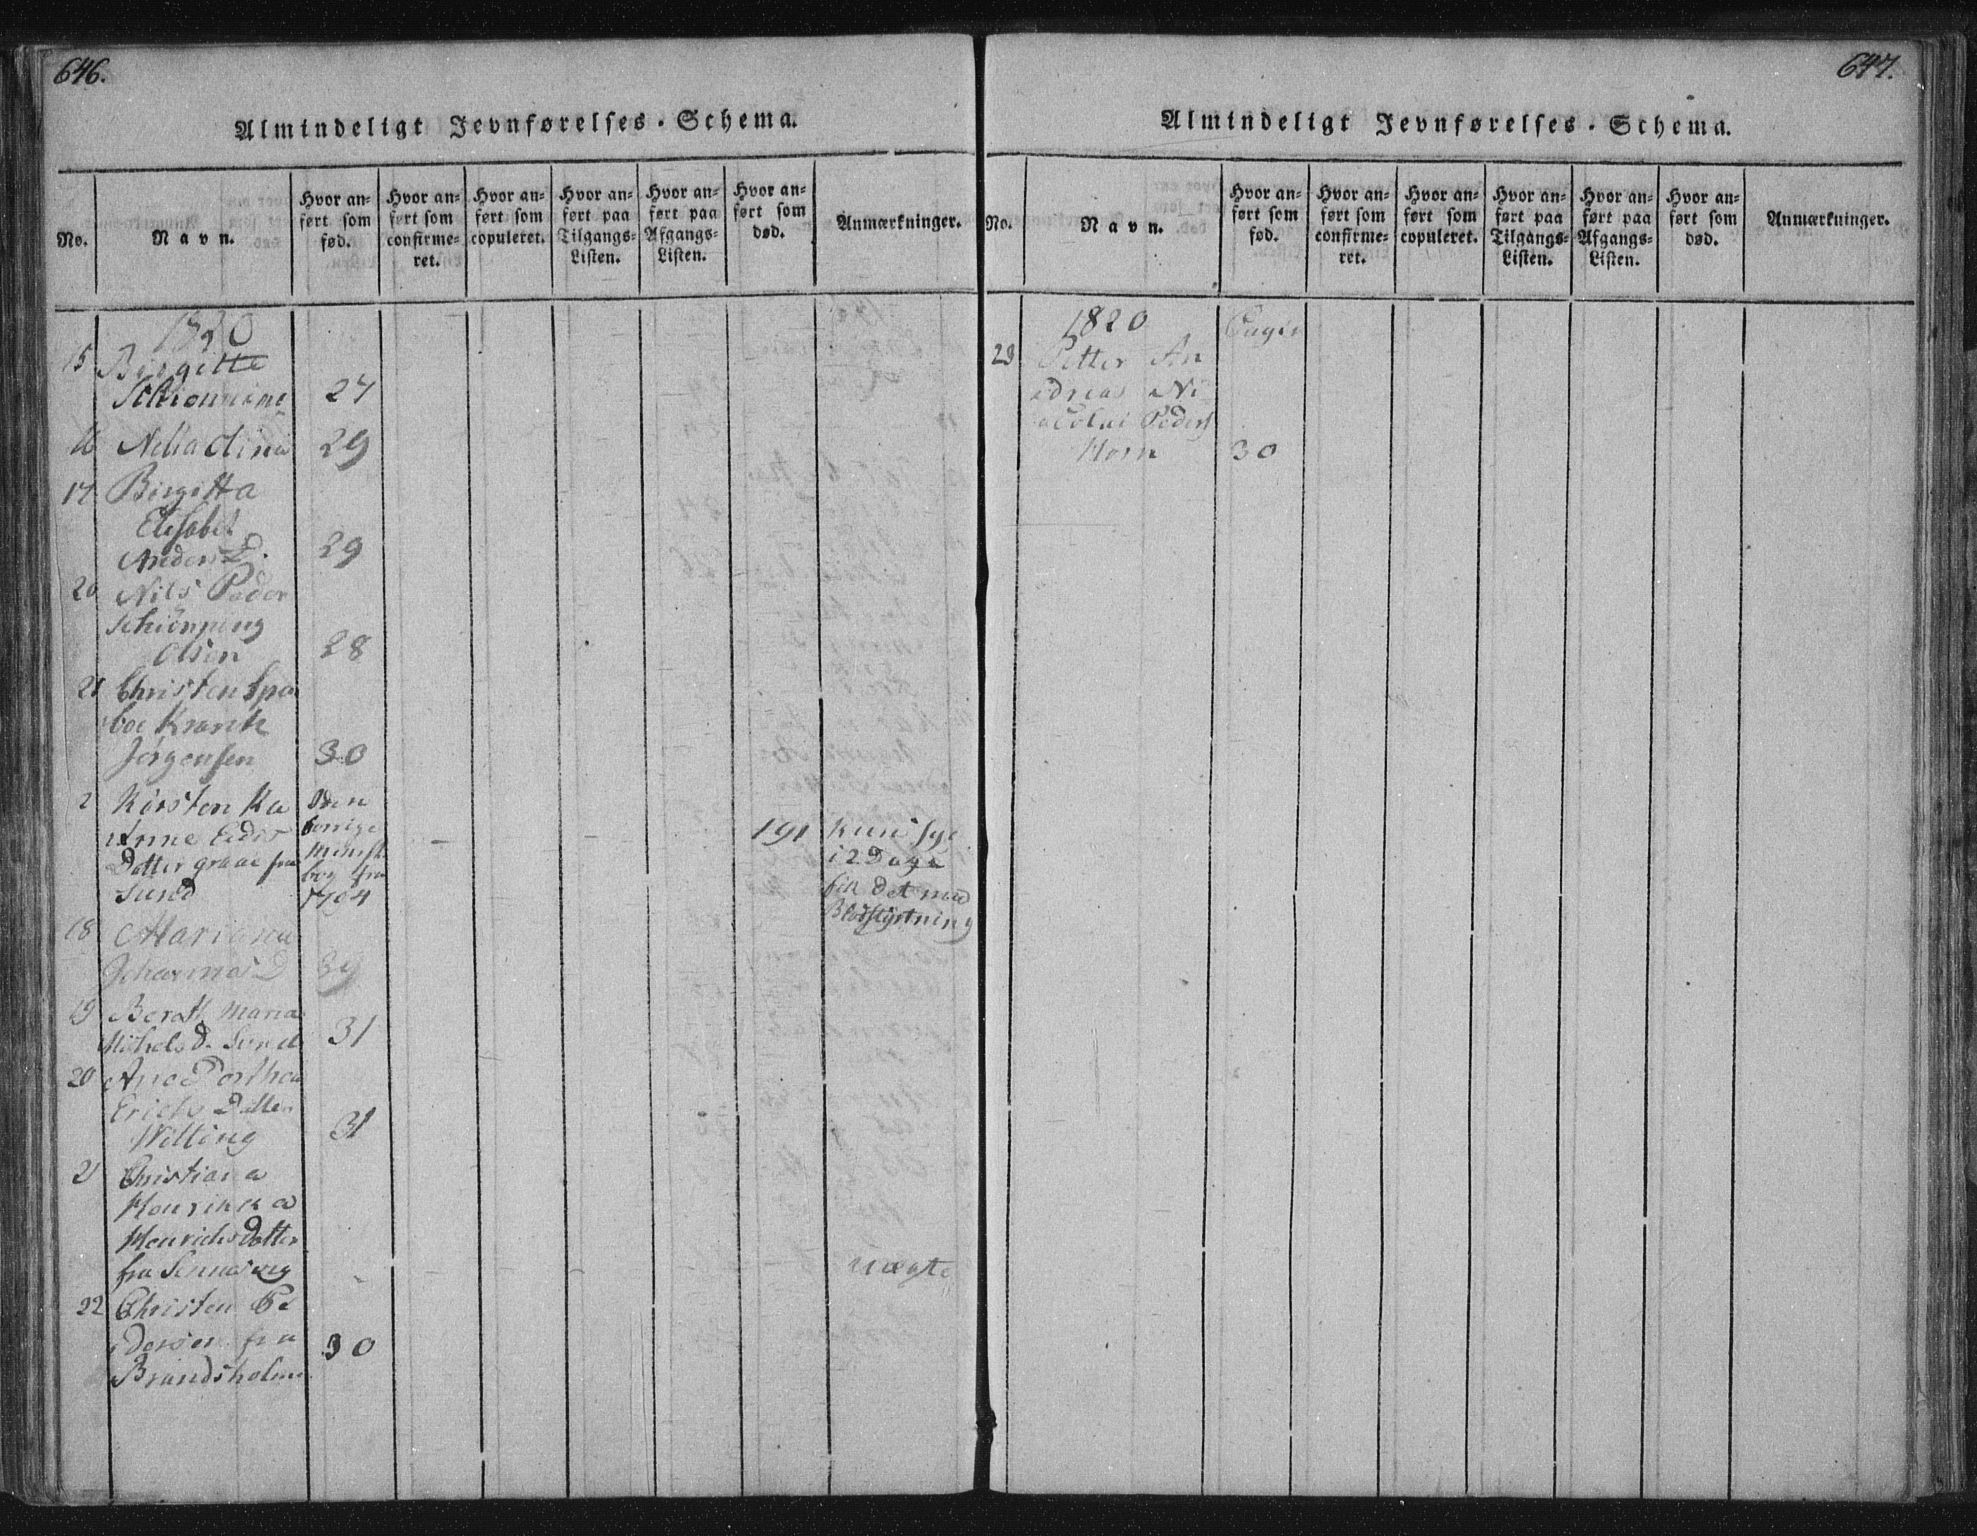 646.
Almindeligt Jevnførelses-Schema.
No.
Navn.
Hvor an-
ført som
fød.
Hvor an-
ført som
confirme-
ret.
Hvor an-
ført som
copuleret.
Hvor an-
ført paa
Tilgangs-
Listen.
Hvor an-
ført paa
Afgangs-
Listen.
Hvor an-
ført som
død.
Anmærkninger.
1820
15 Birgitte
27
16 29
17 Birgitta
Elisabet
Anders D. 29
20 Nils Peder
Schiönning
Olsen 28
21 Christen Spar
boe Krank
Jörgensen 30
2 Kirsten Ka
Datter graae fra
Sund
fra
1704
191
i 2 Dage
det med
Blodstyrtning
18 Mariana
D 39
19 Berath Maria
Michels D. Sund 31
20 Ane Dorthea
Erichs Datter
Witting 31
21 Christiana
Henrikka
Henrichs Datter
fra
uægte
22 Christen Pe
dersen fra 30
Brandsholm
647.
Almindeligt Jevnførelses-Schema.
No.
Navn.
Hvor an-
ført som
fød.
Hvor an-
ført som
confirme-
ret.
Hvor an-
ført som
copuleret.
Hvor an-
ført paa
Tilgangs-
Listen.
Hvor an-
ført paa
Afgangs-
Listen.
Hvor an-
ført som
død.
Anmærkninger.
1820
23 Petter An
dreas Ni
colai Peders
Horn 30